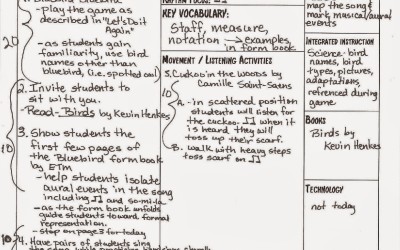 -play the game as
described in "Let's Do it
Again"
20
-as students gain
familiarity, use bird
names other than
bluebird, (i.e. spotted owl)
2. Invite students to
sit with you.
Read-Birds by Kevin Henkes
3. Show students the
first few pages of
10
the Bluebird form book
by ETM
-help students isolate
aural events in the song
including ♫ and so-mi-la
-as the form book unfolds
guide students toward formal
representation.
-stop on page 3 for today
10
4. Have pairs of students sing
KEY VOCABULARY:
Staff, measure,
notation → examples
in form book
MOVEMENT / LISTENING ACTIVITIES
5. Cuckoo in the woods by
Camille Saint-Saens
10
A. -in scattered position
students will listen for
the cuckoo ♫ when it
is heard, they will
toss up their scarf.
B. walk with heavy steps
toss scarf on ♫
map the song &
mark musical/aural
events
INTEGRATED INSTRUCTION
Science-bird
names, bird
types, pictures,
adaptations,
refrenced during
game.
BOOKS
Birds by
Kevin Henkes
TECHNOLOGY
not today